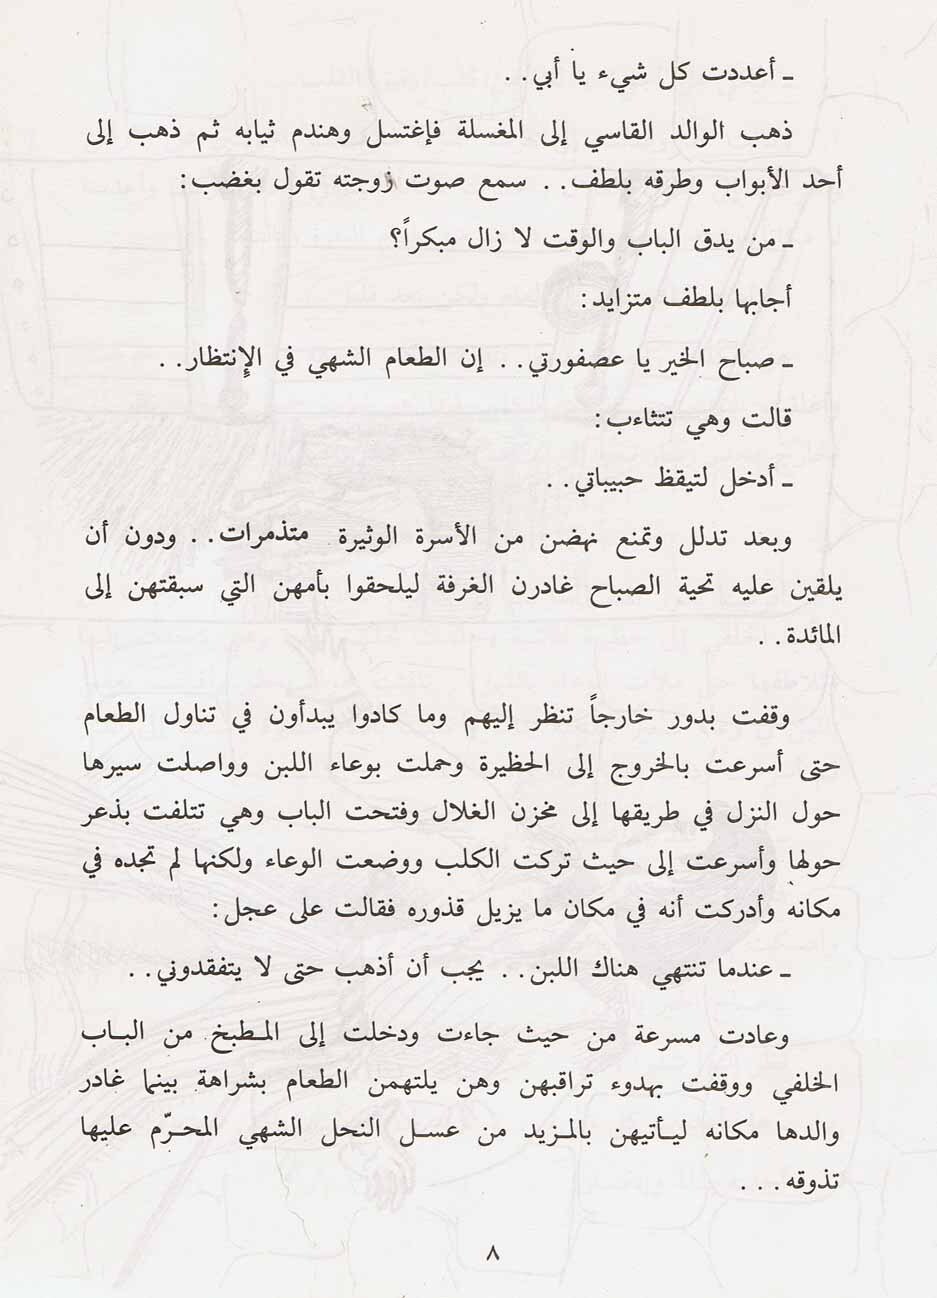 ـ أعددت كل شيء يا أبي..
ذهب الوالد القاسي إلى المغسلة فإغتسل وهندم ثيابه ثم ذهب إلى
أحد الأبواب وطرقه بلطف.. سمع صوت زوجته تقول بغضب:
ـ من يدق الباب والوقت لا زال مبكراً؟
أجابها بلطف متزايد:
ـ صباح الخير يا عصفورتي.. إن الطعام الشهي في الإنتظار..
قالت وهي تتثاءب:
ـ أدخل لتيقظ حبيباتي..
وبعد تدلل وتمنع نهضن من الأسرة الوثيرة متذمرات.. ودون أن
يلقين عليه تحية الصباح غادرن الغرفة ليلحقوا بأمهن التي سبقتهن إلى
المائدة..
وقفت بدور خارجاً تنظر إليهم وما كادوا يبدأون في تناول الطعام
حتى أسرعت بالخروج إلى الحظيرة وحملت بوعاء اللبن وواصلت سيرها
حول النزل في طريقها إلى مخزن الغلال وفتحت الباب وهي تتلفت بذعر
حولها وأسرعت إلى حيث تركت الكلب ووضعت الوعاء ولكنها لم تجده في
مكانه وأدركت أنه في مكان ما يزيل قذوره فقالت على عجل:
ـ عندما تنتهي هناك اللبن.. يجب أن أذهب حتى لا يتفقدوني..
وعادت مسرعة من حيث جاءت ودخلت إلى المطبخ من الباب
الخلفي ووقفت بهدوء تراقبهن وهن يلتهمن الطعام بشراهة بينما غادر
والدها مكانه ليأتيهن بالمزيد من عسل النحل الشهي المحرّم عليها
تذوقه...
٨